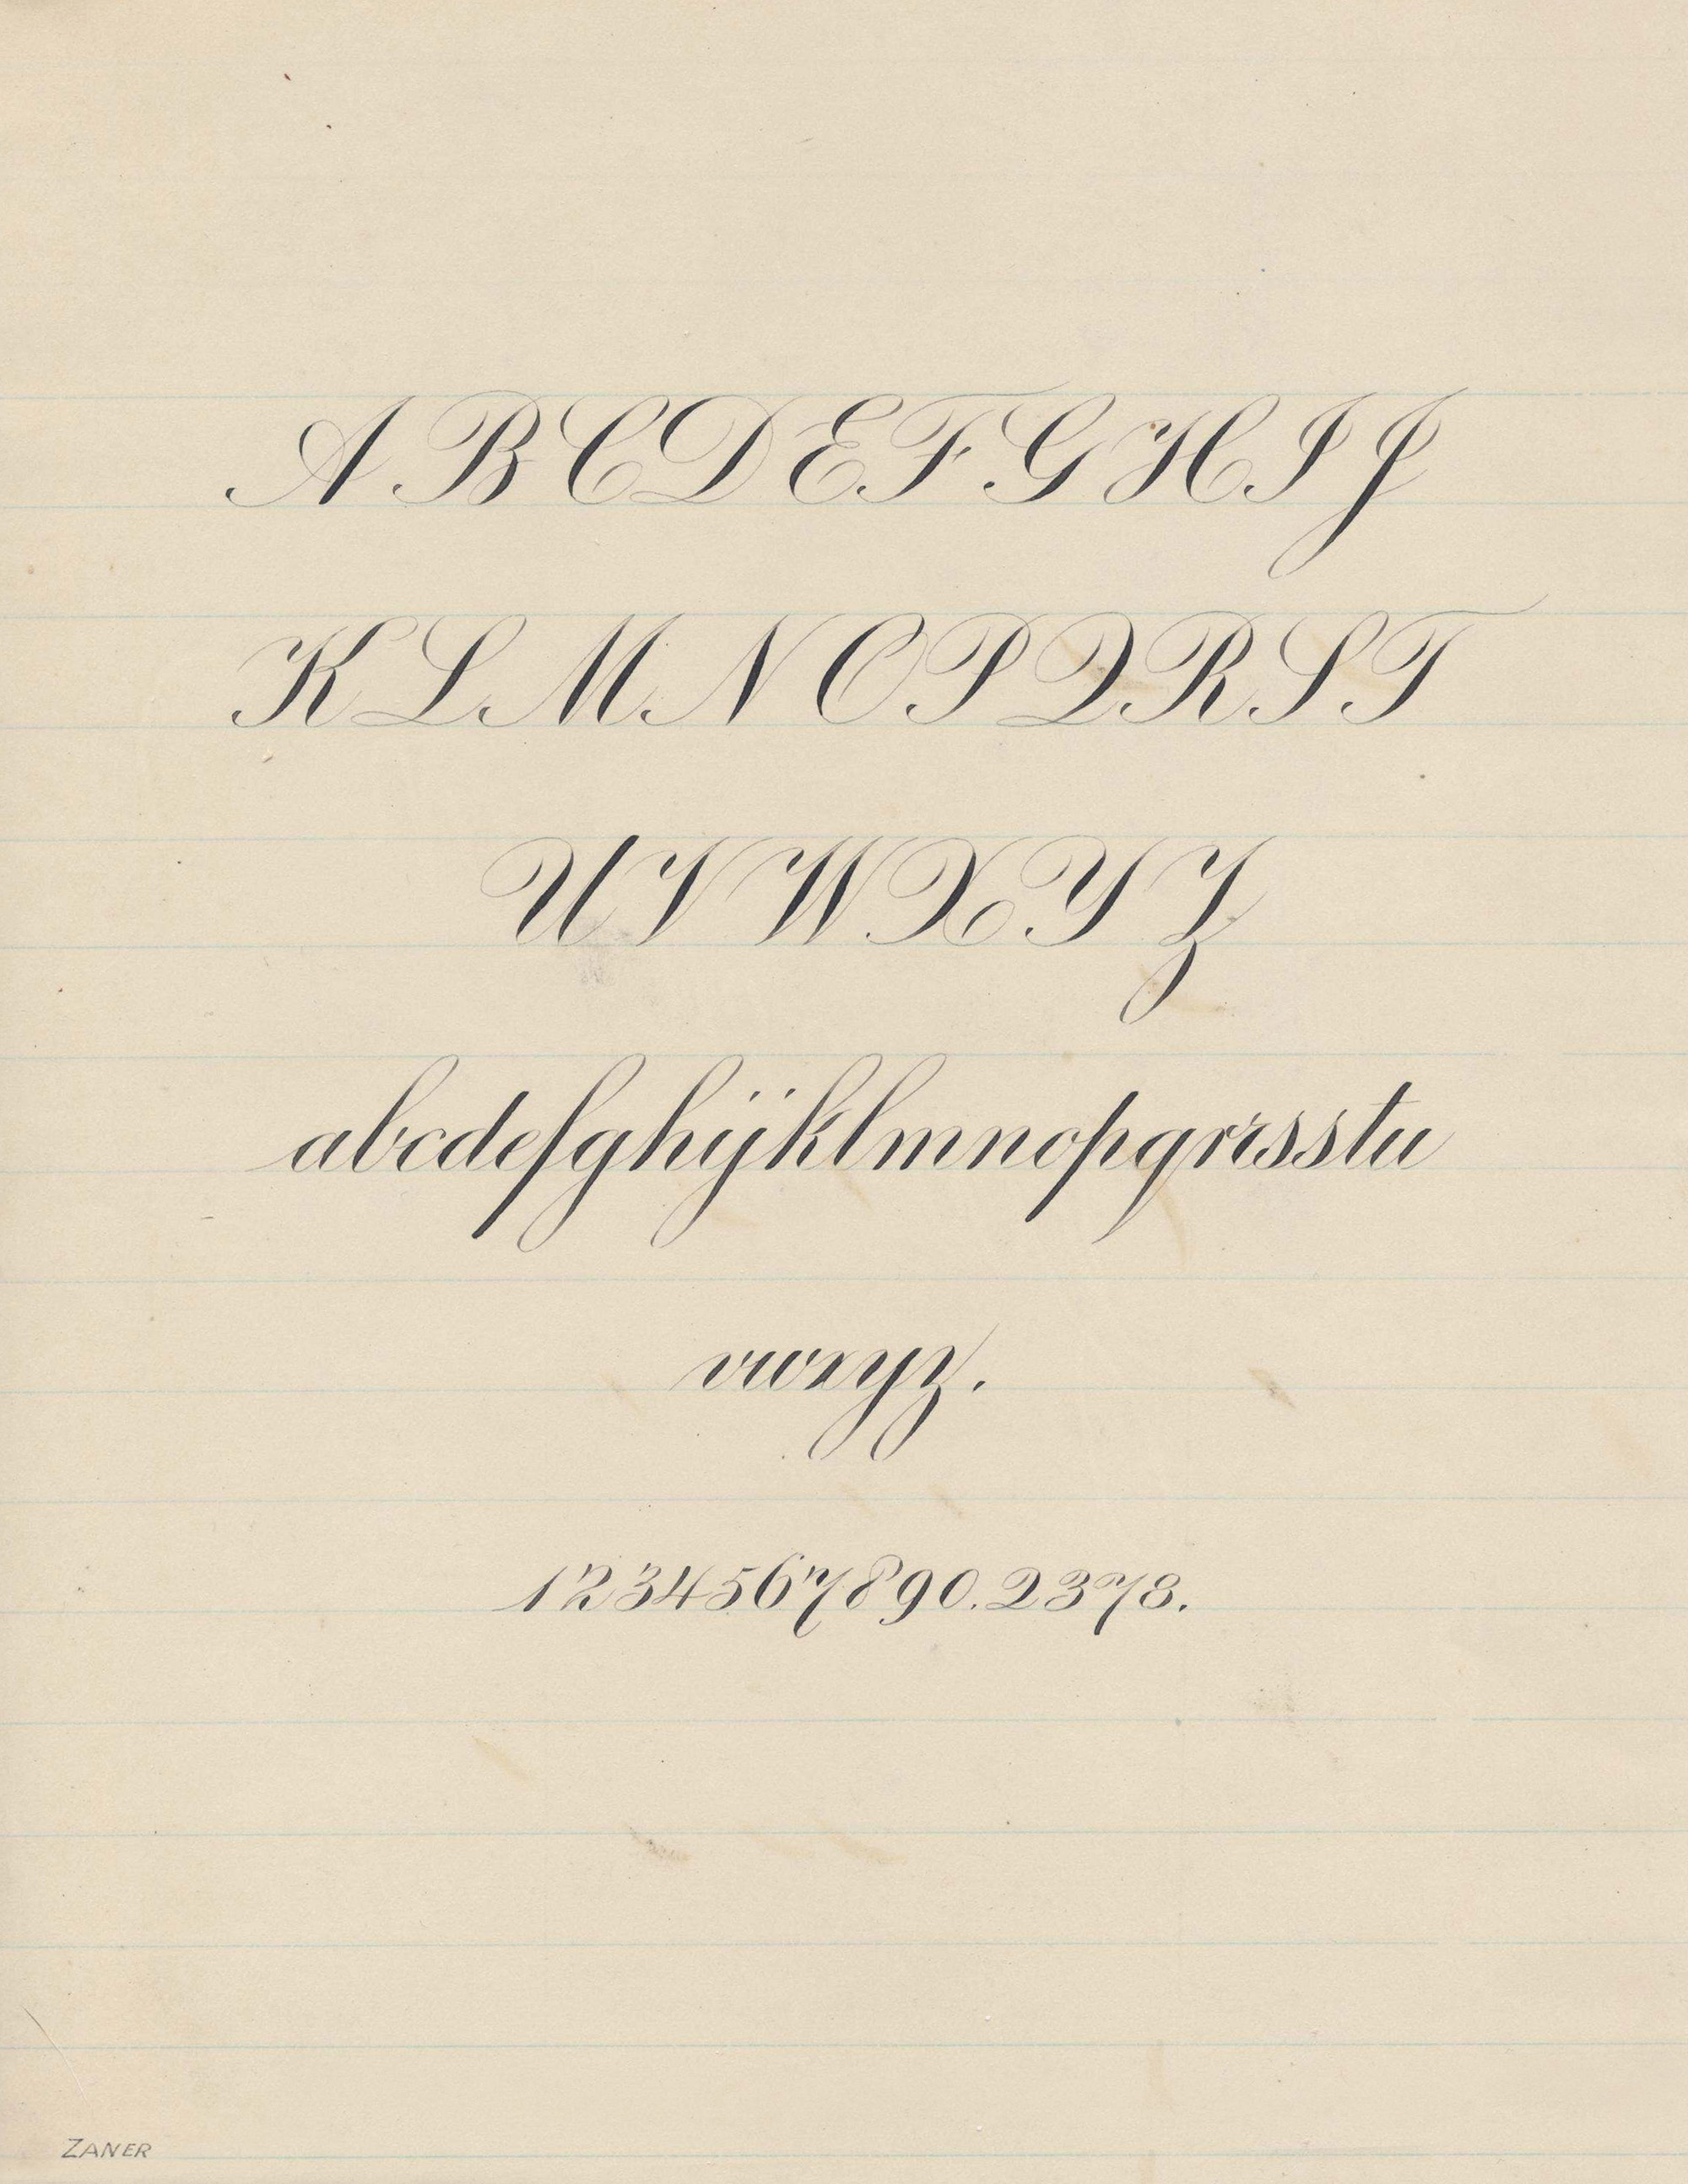 A B C D E F G H I J
K L M N O P Q R S T
U V W X Y Z
abcdefghijklmnopqrrsstu
vwxyz.
1234567890.2378.
ZANER